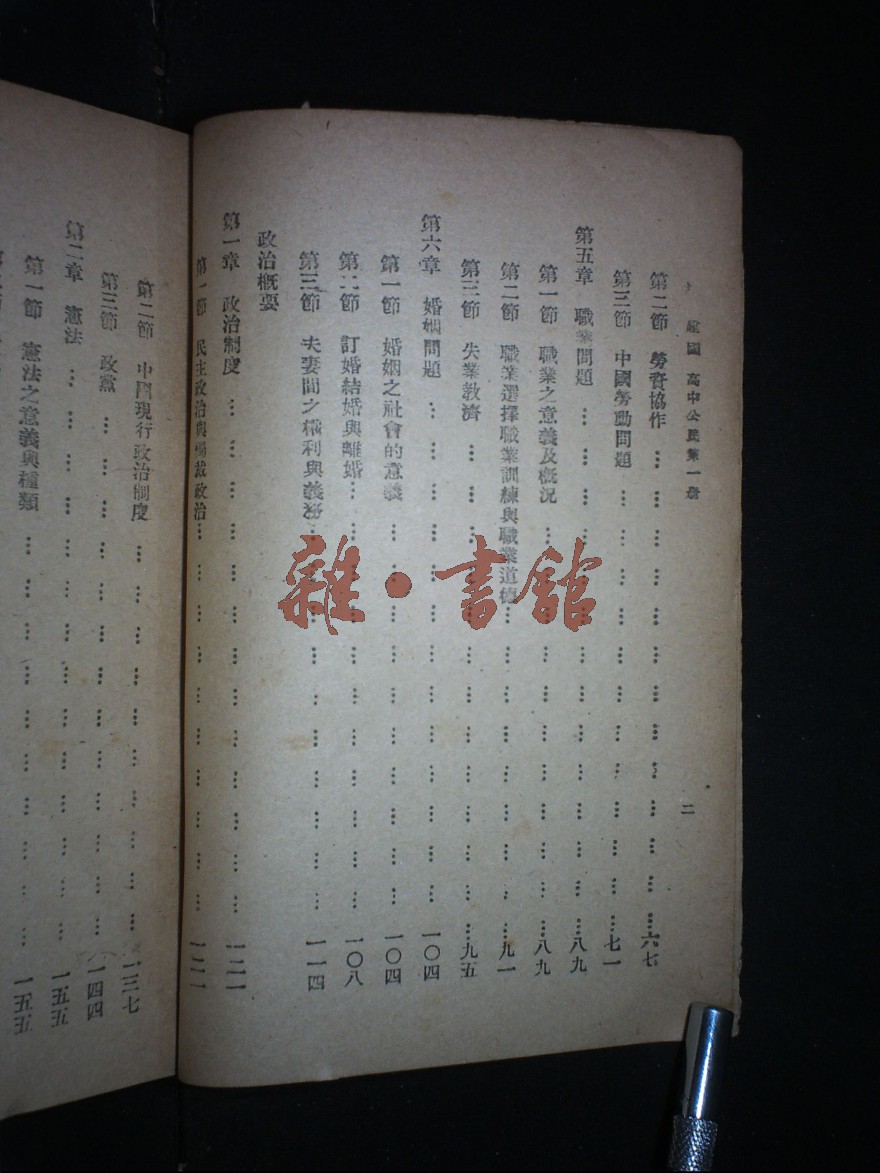 建國 高中公民第一册 二
第二節 勞資協作 ……………………………六七
第三節 中國勞動問題 ……………………………七一
第五章 職業問題 ……………………………八九
第一節 職業之意義及概況 ……………………………八九
第二節 職業選擇職業訓練與職業道德 ……………………………九一
第三節 失業救濟 ……………………………九五
第六章 婚姻問題 ……………………………一〇四
第一節 婚姻之社會的意義 ……………………………一〇四
第二節 訂婚結婚與離婚 ……………………………一〇八
第三節 夫妻間之權利與義務 ……………………………一一四
政治概要
第一章 政治制度 ……………………………一二一
第一節 民主政治與獨裁政治 ……………………………一二一
第二節 中國現行政治制度 ……………………………一三七
第三節 政黨 ……………………………一四四
第二章 憲法 ……………………………一五五
第一節 憲法之意義與種類 ……………………………一五五
雜·書館